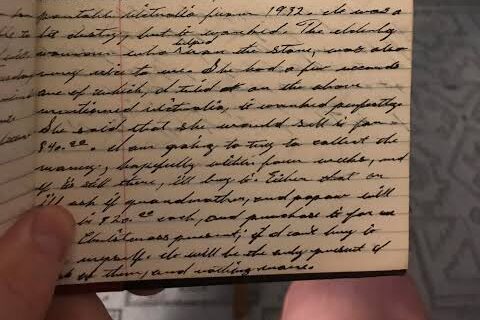 portable Victrola from 1932. It was a
bit dusty, but it worked. The elderly
woman, who helped run the store, was also
very nice to me. She had a few records
one of which, I tried out on the above
mentioned Victrola, it worked perfectly.
She said that she would sell it for
$40.00. I am going to try to collect the
money, hopefully within four weeks, and
if its still there, I'll buy it. Either that or
I'll ask if grandmother, and papaw will
$20.00 each, and purchase it for me
Christmas present; if I don't buy it
myself. It will be the only present I
them, and nothing more.